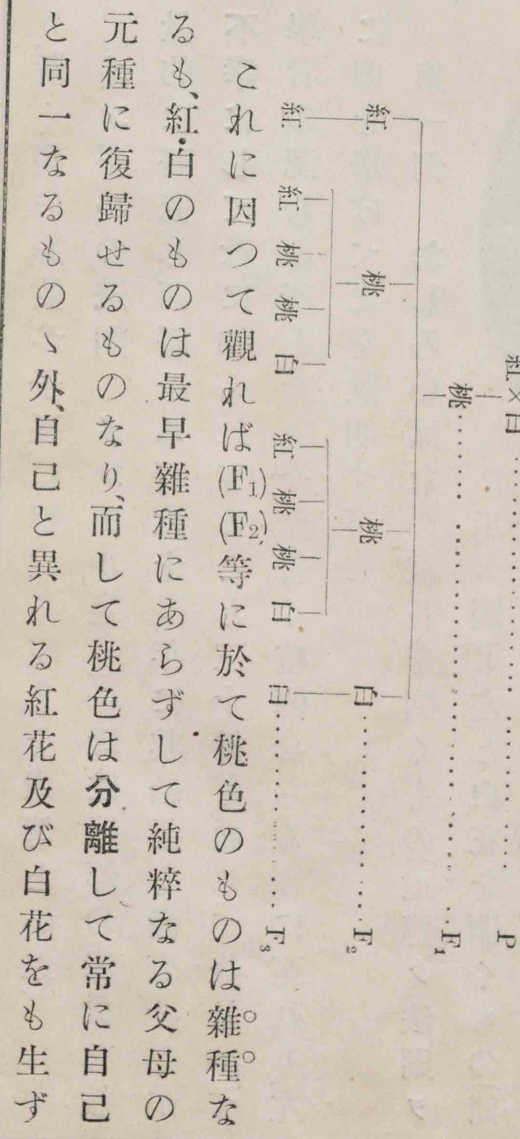 紅×白 P
桃 F₁
紅 桃 桃 白 F₂
紅 紅 桃 桃 白 紅 桃 桃 白 白 F₃
これに因つて觀れば(F₁)(F₂)等に於て桃色のものは雜種な
るも、紅・白のものは最早雜種にあらずして純粹なる父母の
元種に復歸せるものなり、而して桃色は分離して常に自己
と同一なるものゝ外、自己と異れる紅花及び白花をも生ず